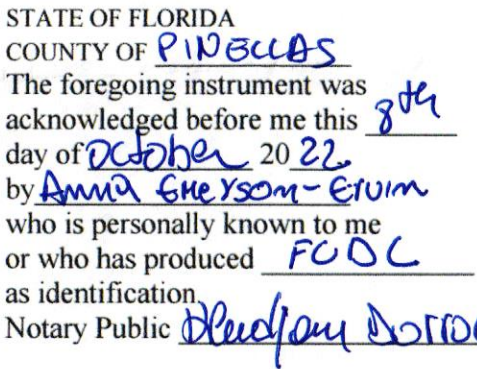 STATE OF FLORIDA
COUNTY OF PINELLAS
The foregoing instrument was
acknowledged before me this 8th
day of October 20 22.
by Anna Emerson-Ervin
who is personally known to me
or who has produced FLDL
as identification.
Notary Public